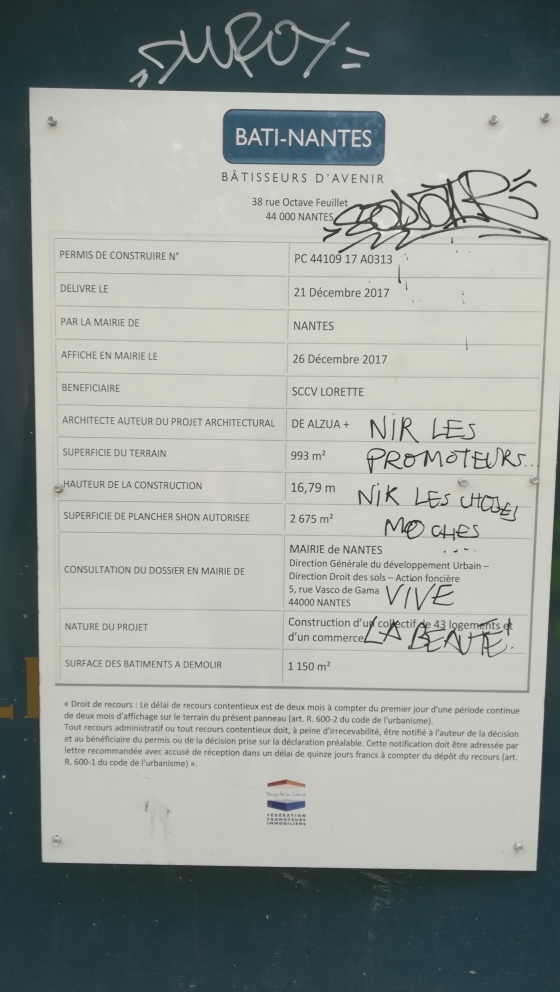 BATI-NANTES
BÂTISSEURS D'AVENIR
38 rue Octave Feuillet
44 000 NANTES
PERMIS DE CONSTRUIRE N° PC 44109 17 A0313
DELIVRE LE 21 Décembre 2017
PAR LA MAIRIE DE NANTES
AFFICHE EN MAIRIE LE 26 Décembre 2017
BENEFICIAIRE SCCV LORETTE
ARCHITECTE AUTEUR DU PROJET ARCHITECTURAL DE ALZUA +
SUPERFICIE DU TERRAIN 993 m²
HAUTEUR DE LA CONSTRUCTION 16,79 m
SUPERFICIE DE PLANCHER SHON AUTORISEE 2 675 m²
CONSULTATION DU DOSSIER EN MAIRIE DE MAIRIE de NANTES
Direction Générale du développement Urbain –
Direction Droit des sols – Action foncière
5, rue Vasco de Gama
44000 NANTES
NATURE DU PROJET Construction d'un collectif de 43 logements et
d'un commerce
SURFACE DES BATIMENTS A DEMOLIR 1 150 m²
NIR LES
PROMOTEURS...
NIK LES CHOSES
MOCHES
....
VIVE
LA BEAUTÉ!
« Droit de recours : Le délai de recours contentieux est de deux mois à compter du premier jour d'une période continue
de deux mois d'affichage sur le terrain du présent panneau (art. R. 600-2 du code de l'urbanisme).
Tout recours administratif ou tout recours contentieux doit, à peine d'irrecevabilité, être notifié à l'auteur de la décision
et au bénéficiaire du permis ou de la décision prise sur la déclaration préalable. Cette notification doit être adressée par
lettre recommandée avec accusé de réception dans un délai de quinze jours francs à compter du dépôt du recours (art.
R. 600-1 du code de l'urbanisme) ».
FÉDÉRATION
PROMOTEURS
IMMOBILIERS